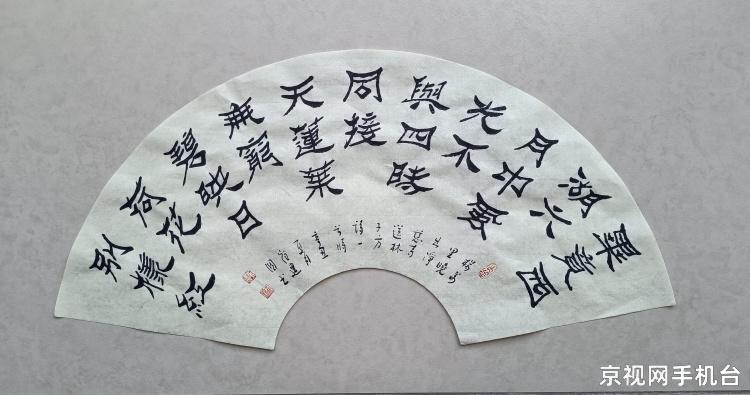 畢竟西
湖六
月中風
光不
與四時
同接
天蓮葉
無窮
碧映日
荷花
別樣紅
楊万
里曉
出淨
慈寺
送林
子方
詩一
夏月
京视网手机台